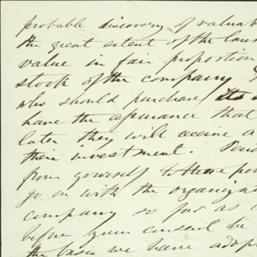 probable discovery of valuab
the great extent of the lan
value in fair proportion
stock of the company
who should purchase its
have the assurance that
later they will receive a
their investment.
from yourself to those po
go on with the organiza
company so far as
before your consent be
the basis we have adop